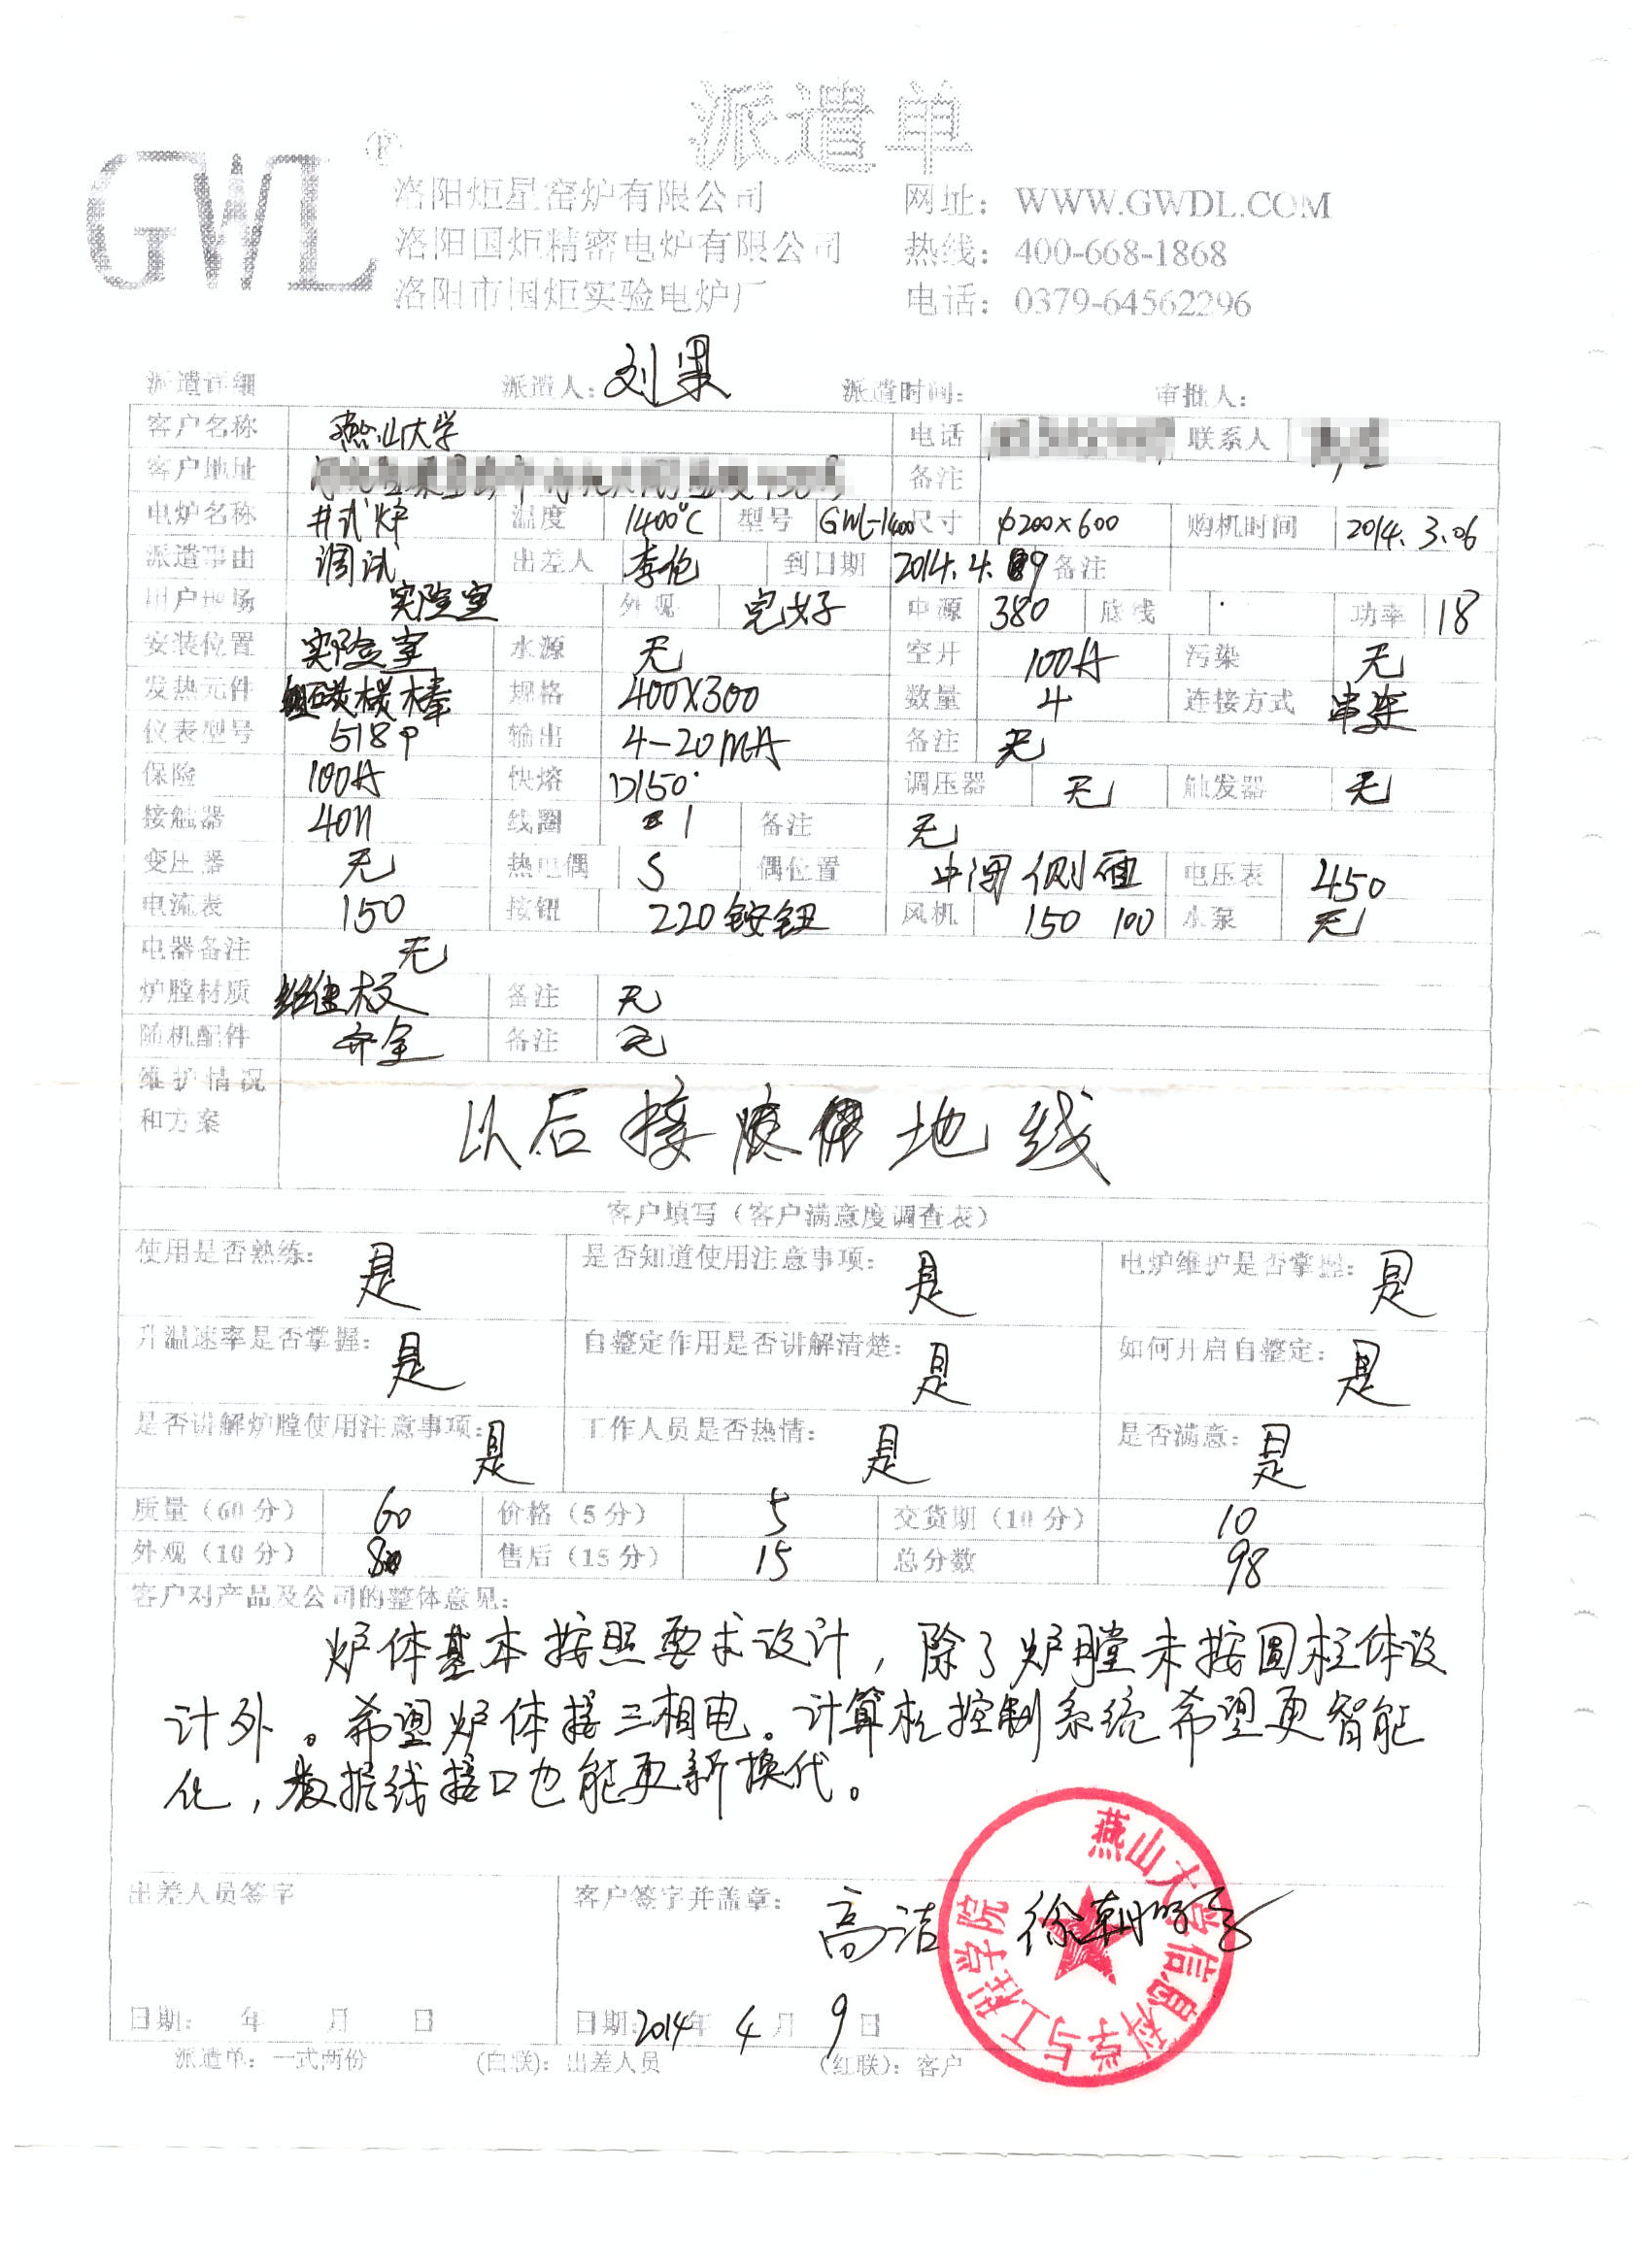 派遣单
GWL®
洛阳炬星窑炉有限公司 网址：WWW.GWDL.COM
洛阳国炬精密电炉有限公司 热线：400-668-1868
洛阳市国炬实验电炉厂 电话：0379-64562296
派遣详细 派遣人：刘果 派遣时间： 审批人：
客户名称 燕山大学 电话 联系人
客户地址 备注
电炉名称 井式炉 温度 1400℃ 型号 GWL-1400 尺寸 φ200×600 购机时间 2014.3.06
派遣事由 调试 出差人 李伦 到日期 2014.4.9 备注
用户现场 实验室 外观 完好 电源 380 底线 功率 18
安装位置 实验室 水源 无 空开 100A 污染 无
发热元件 硅碳棒 规格 400X300 数量 4 连接方式 串连
仪表型号 518P 输出 4-20mA 备注 无
保险 100A 快熔 D150 调压器 无 触发器 无
接触器 4011 线圈 1 备注 无
变压器 无 热电偶 S 偶位置 中间侧面 电压表 450
电流表 150 按钮 220按钮 风机 150 100 水泵 无
电器备注 无
炉膛材质 纤维板 备注 无
随机配件 齐全 备注 无
维护情况
和方案 以后接 地线
客户填写（客户满意度调查表）
使用是否熟练：是 是否知道使用注意事项：是 电炉维护是否掌握：是
升温速率是否掌握：是 自整定作用是否讲解清楚：是 如何开启自整定：是
是否讲解炉膛使用注意事项：是 工作人员是否热情：是 是否满意：是
质量（60分） 60 价格（5分） 5 交货期（10分） 10
外观（10分） 8 售后（15分） 15 总分数 98
客户对产品及公司的整体意见：
炉体基本按照要求设计，除了炉膛未按圆柱体设
计外。希望炉体接三相电。计算机控制系统希望更智能
化，数据线接口也能更新换代。
出差人员签字 客户签字并盖章：高洁
燕山大学信息科学与工程学院
日期： 年 月 日 日期：2014年4月9日
派遣单：一式两份 (白联)：出差人员 (红联)：客户